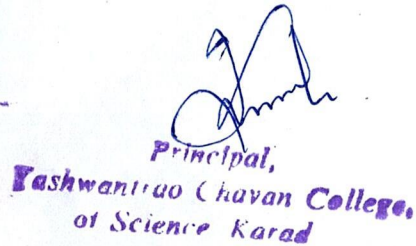 Principal,
Yashwantrao Chavan College,
of Science Karad